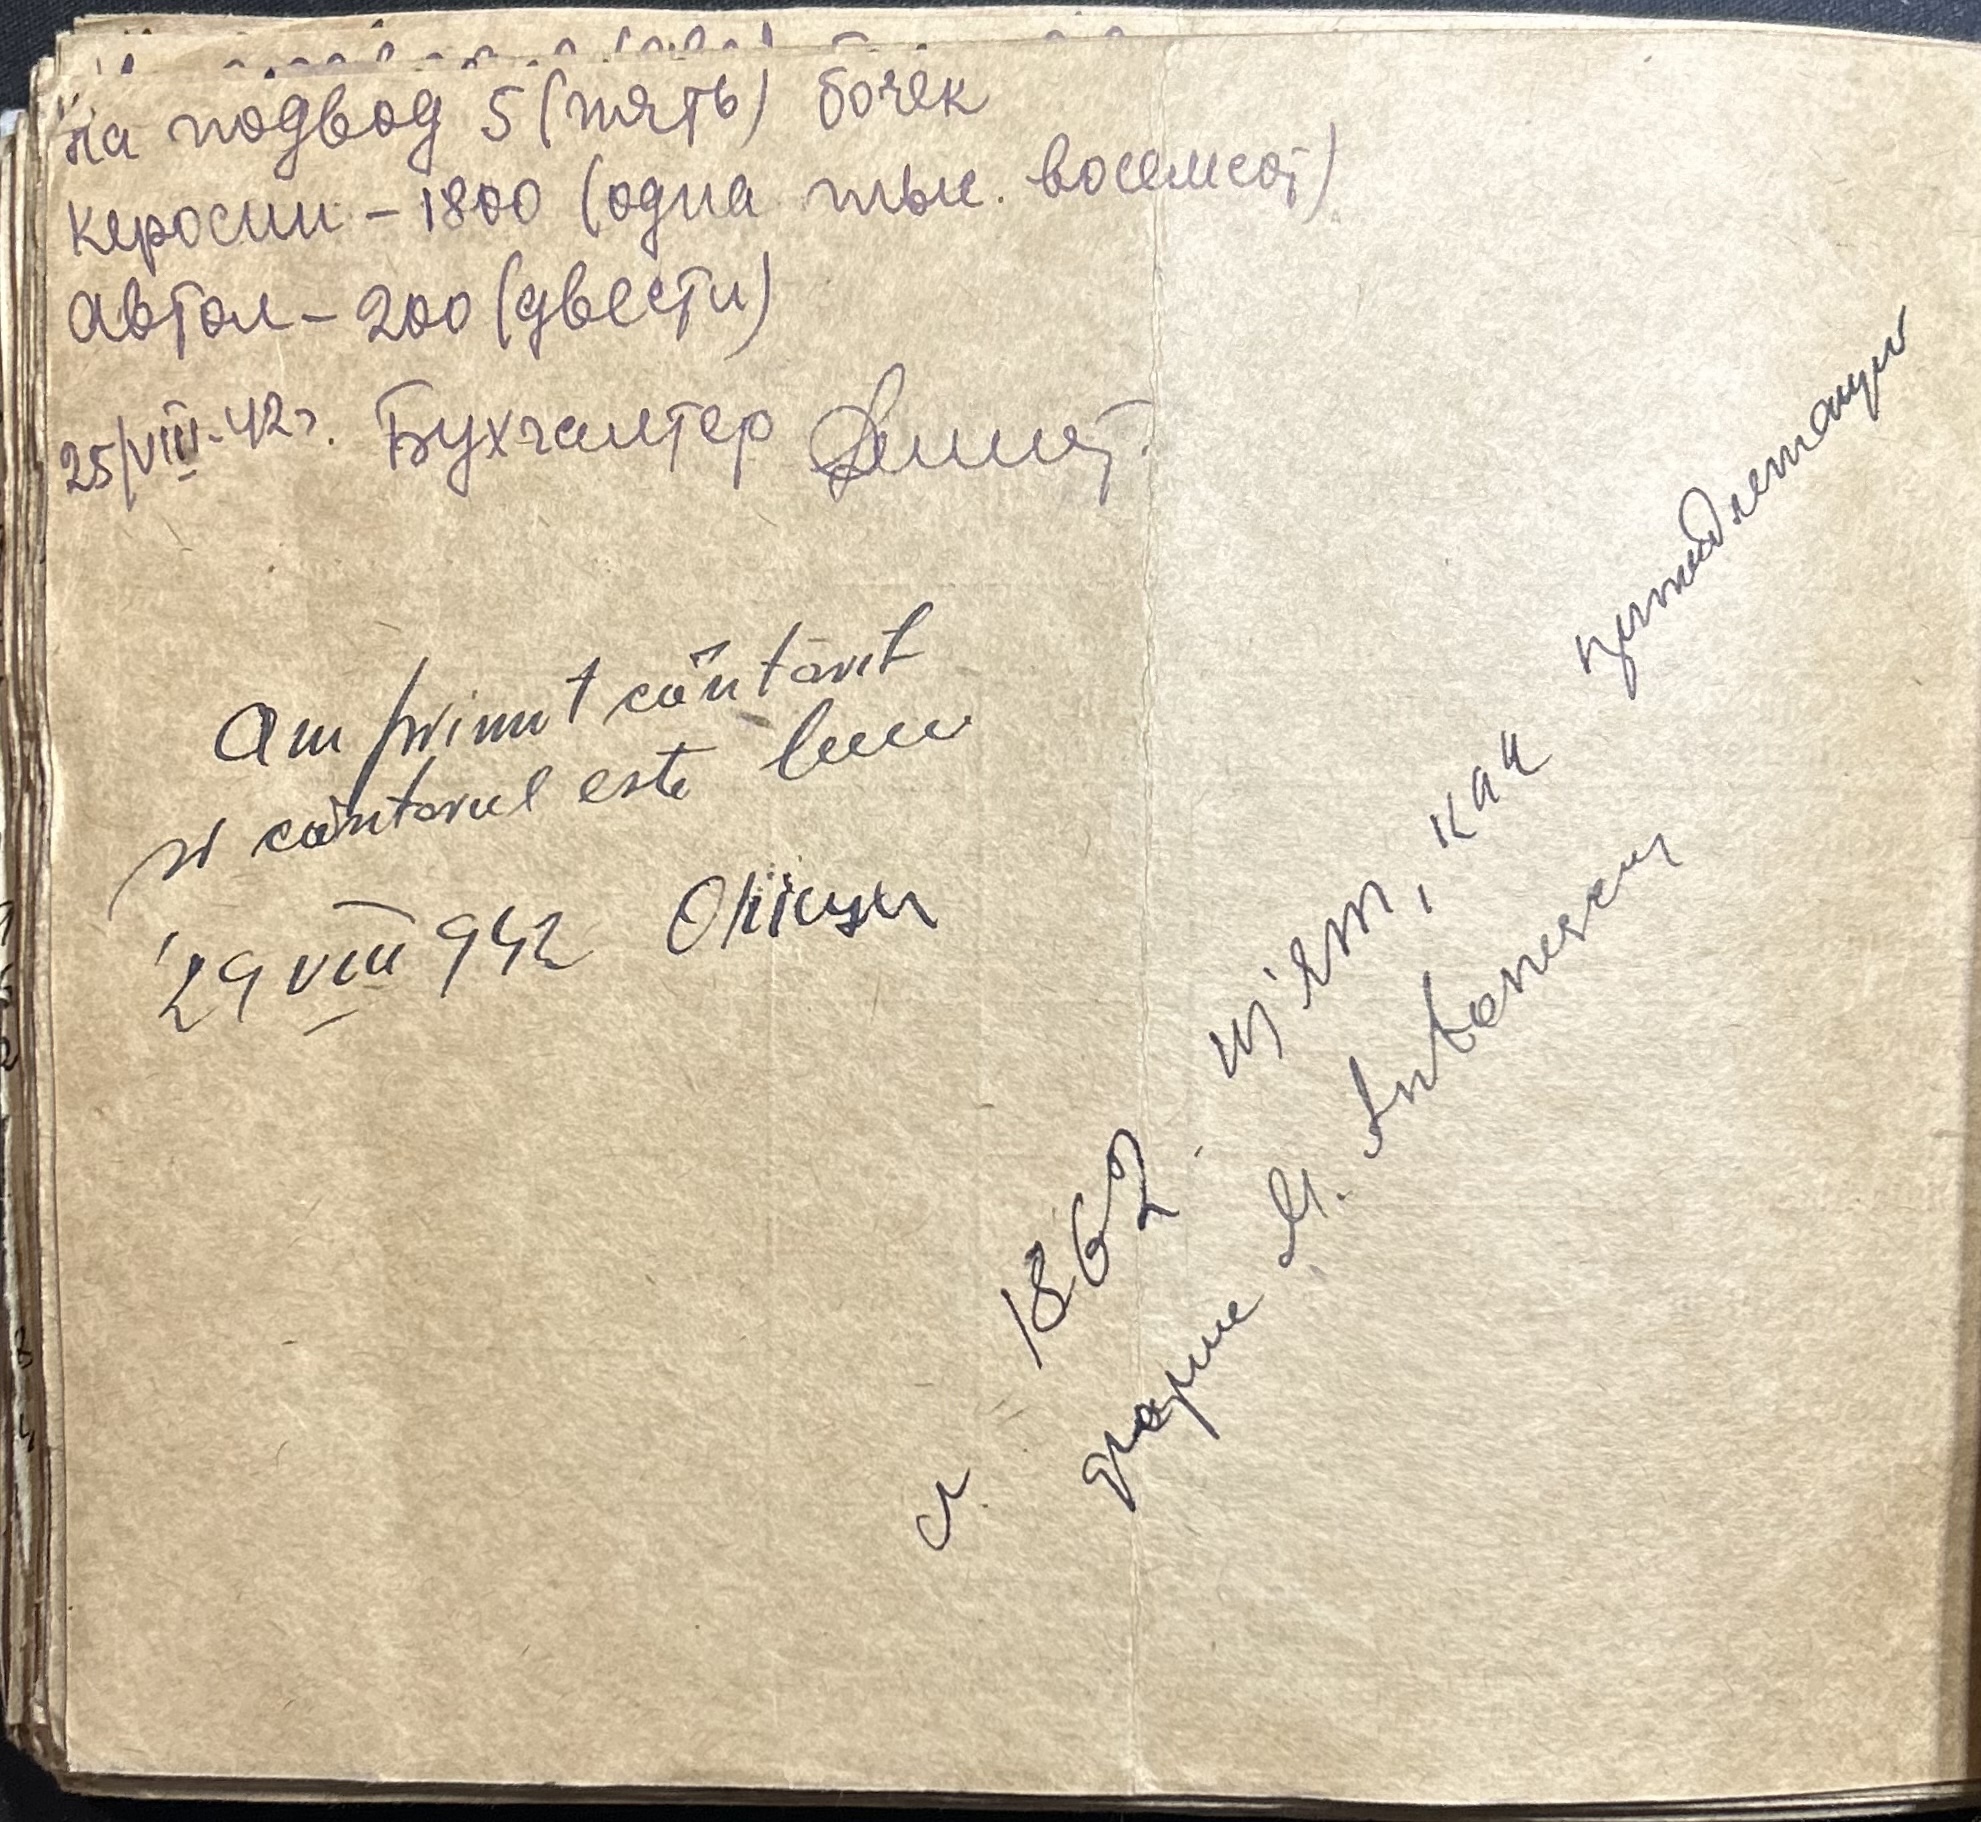 на подвод 5 (пять) бочек
керосин – 1800 (одна тыс. восемсот)
автол – 200 (двести)
25/VIII-42 г. Бухгалтер
Am primit cântărit
și cântarul este bun
29 VIII 942
1862
как принадлежащую
ферме M. Antonescu